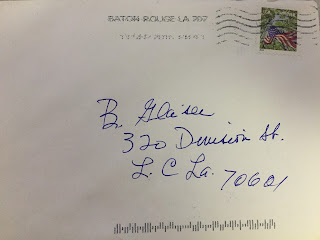 BATON ROUGE LA 707
B. Glaisee
320 Division St.
L. C La. 70601